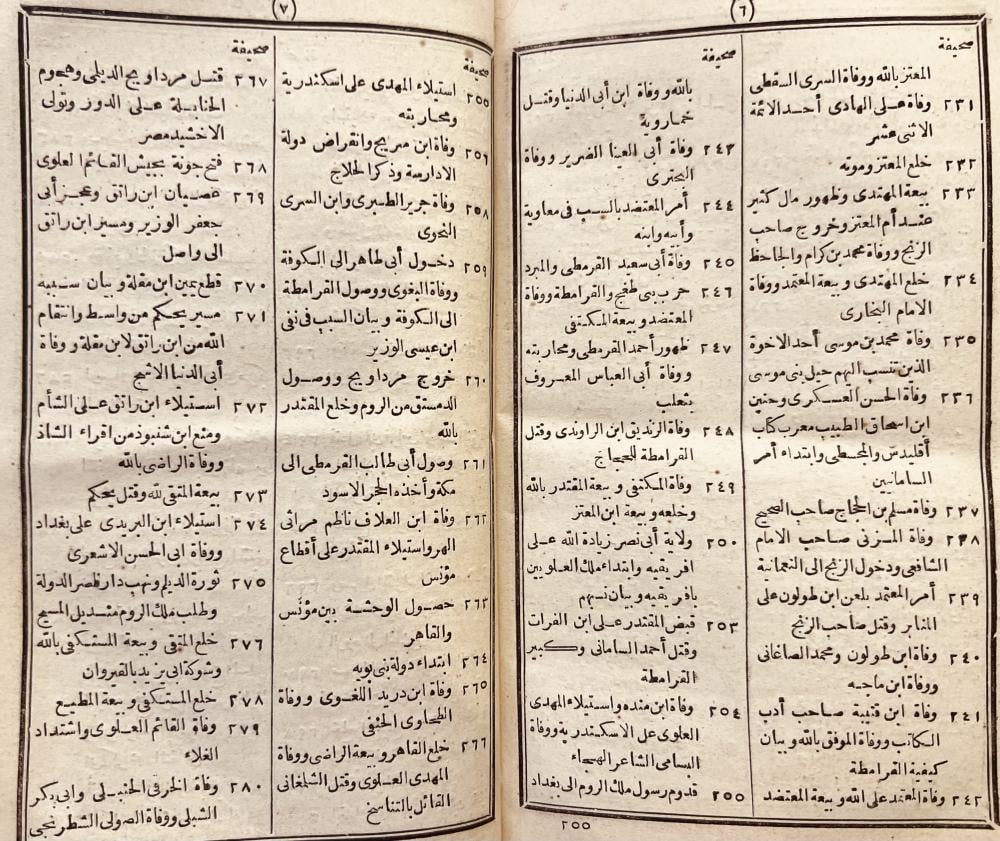 (٦)
صحيفة
المعتز بالله ووفاة السرى السقطى
٢٣١ وفاة على الهادى أحد الائمة
الاثنى عشر
٢٣٢ خلع المعتز وموته
٢٣٣ بيعة المهتدى وظهور مال كثير
عند أم المعتز وخروج صاحب
الزنج ووفاة محمد بن كرام والجاحظ
٢٣٤ خلع المهتدى وبيعة المعتمد ووفاة
الامام البخارى
٢٣٥ وفاة محمد بن موسى أحد الاخوة
الذين تنسب اليهم حيل بنى موسى
٢٣٦ وفاة الحسن العسكرى وحنين
ابن اسحاق الطبيب معرب كتاب
أقليدس والمجسطى وابتداء أمر
السامانيين
٢٣٧ وفاة مسلم بن الحجاج صاحب الصحيح
٢٣٨ وفاة المزنى صاحب الامام
الشافعى ودخول الزنج الى النعمانية
٢٣٩ أمر المعتمد بلعن ابن طولون على
المنابر وقتل صاحب الزنج
٢٤٠ وفاة ابن طولون ومحمد الصاغانى
ووفاة ابن ماجه
٢٤١ وفاة ابن قتيبة صاحب أدب
الكاتب ووفاة الموفق بالله وبيان
كيفية القرامطة
٢٤٢ وفاة المعتمد على الله وبيعة المعتضد
صحيفة
بالله ووفاة ابن أبى الدنيا وقتل
خمارويه
٢٤٣ وفاة أبى العنا الضرير ووفاة
البحترى
٢٤٤ أمر المعتضد بالسب فى معاوية
وأبيه وابنه
٢٤٥ وفاة أبى سعيد القرمطى والمبرد
٢٤٦ حرب بنى طغج والقرامطة ووفاة
المعتضد وبيعة المكتفى
٢٤٧ ظهور أحمد القرمطى ومحاربته
ووفاة أبى العباس المعروف
بثعلب
٢٤٨ وفاة الزنديق ابن الراوندى وقتل
القرامطة للحجاج
٢٤٩ وفاة المكتفى وبيعة المقتدر بالله
وخلعه وبيعة ابن المعتز
٢٥٠ ولاية أبى نصر زيادة الله على
افريقيه وابتداء ملك العلويين
بافريقيه وبيان نسبهم
٢٥٣ قبض المقتدر على ابن الفرات
وقتل أحمد السامانى وكبير
القرامطة
٢٥٤ وفاة ابن منده واستيلاء المهدى
العلوى على الاسكندرية ووفاة
البسامى الشاعر الهجاء
٢٥٥ قدوم رسول ملك الروم الى بغداد
٢٥٥
(٧)
صحيفة
٢٥٥ استيلاء المهدى على اسكندرية
ومحاربته
٢٥٦ وفاة ابن سريج وانقراض دولة
الادارسة وذكر الحلاج
٢٥٨ وفاة جرير الطبرى وابن السرى
النحوى
٢٥٩ دخول أبى طاهر الى الكوفة
ووفاة البغوى ووصول القرامطة
الى الكوفة وبيان السبب فى نفى
ابن عيسى الوزير
٢٦٠ خروج مرداويج ووصول
الدمستق من الروم وخلع المقتدر
بالله
٢٦١ وصول أبى طالب القرمطى الى
مكة وأخذه الحجر الاسود
٢٦٢ وفاة ابن العلاف ناظم مراثى
الهر واستيلاء المقتدر على أقطاع
مؤنس
٢٦٣ حصول الوحشة بين مؤنس
والقاهر
٢٦٤ ابتداء دولة بنى بويه
٢٦٥ وفاة ابن دريد اللغوى ووفاة
الطحاوى الحنفى
٢٦٦ خلع القاهر وبيعة الراضى ووفاة
المهدى العلوى وقتل الشلمغانى
القائل بالتناسخ
صحيفة
٢٦٧ قتل مرداويج الديلمى وهجوم
الحنابلة على الدور وتولى
الاخشيد مصر
٢٦٨ فتح جونة بجيش القائم العلوى
٢٦٩ عصيان ابن رائق وعجز أبى
جعفر الوزير ومسير ابن رائق
الى واصل
٢٧٠ قطع يمين ابن مقلة وبيان سببه
٢٧١ مسير بحكم من واسط وانتقام
الله من ابن رائق لابن مقلة ووفاة
أبى الدنيا الاشج
٢٧٢ استيلاء ابن رائق على الشأم
ومنع ابن شنبوذ من اقراء الشاذ
ووفاة الراضى بالله
٢٧٣ بيعة المتقى لله وقتل بحكم
٢٧٤ استيلاء ابن البريدى على بغداد
ووفاة ابى الحسن الاشعرى
٢٧٥ ثورة الديلم ونهب دار نصر الدولة
وطلب ملك الروم منديل المسيح
٢٧٦ خلع المتقى وبيعة المستكفى بالله
وشوكة ابى يزيد بالقيروان
٢٧٨ خلع المستكفى وبيعة المطيع
٢٧٩ وفاة القائم العلوى واشتداد
الغلاء
٢٨٠ وفاة الخرقى الحنبلى وابى بكر
الشبلى ووفاة الصولى الشطرنجى